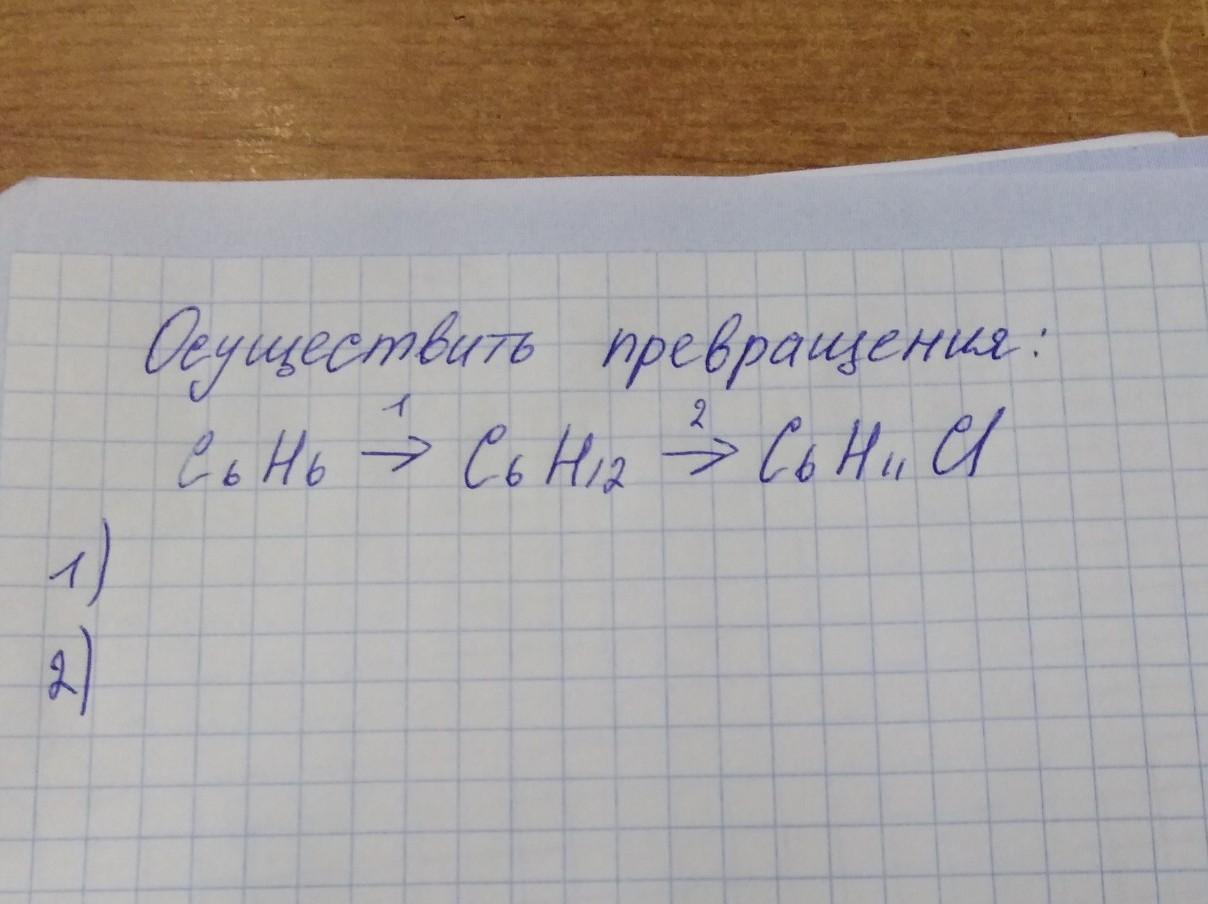 Осуществить превращения:
1 2
C₆H₆ → C₆H₁₂ → C₆H₁₁Cl
1)
2)